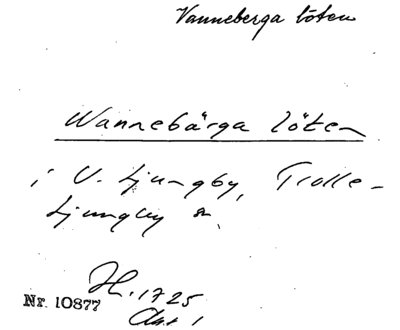 Vanneberga löten
Wannebärga löten
i V. Ljungby, Trolle-
Ljungby sn.
H. 1725
Nr. 10877
Akt 1